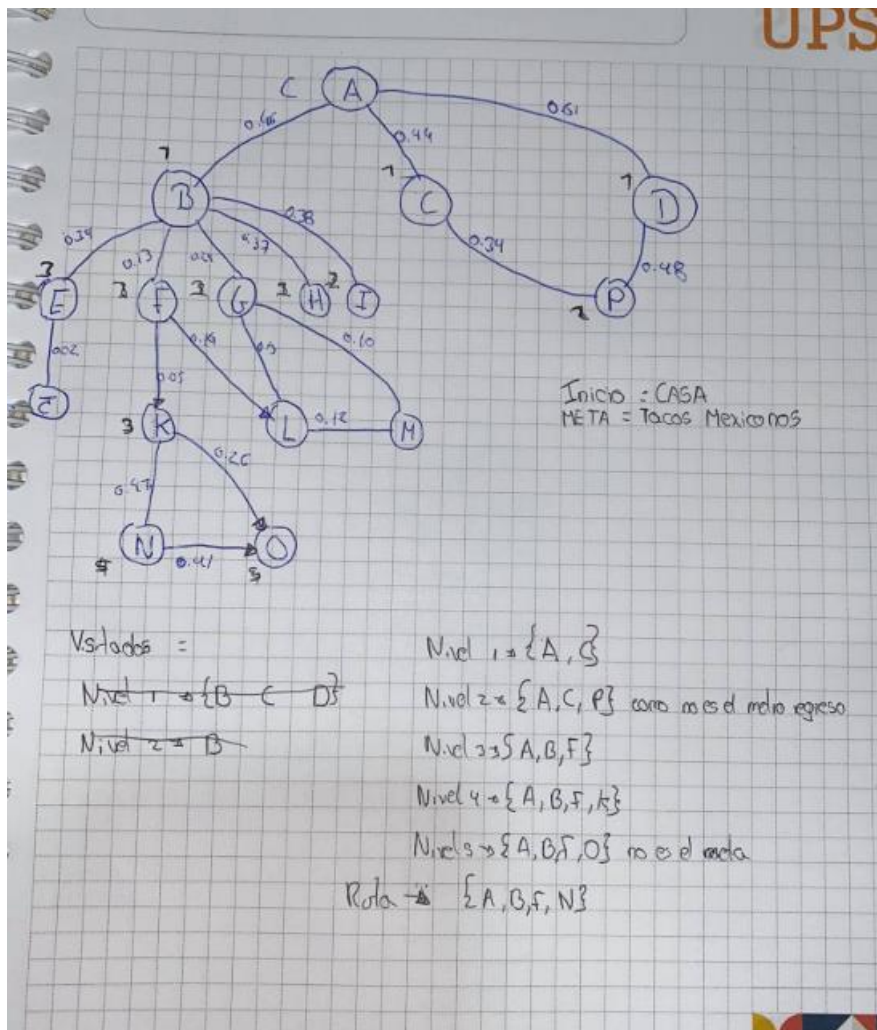 UPS
C A
0.46
0.44
0.61
1 B
1 C
1 D
0.34
0.13
0.37
0.38
0.34
0.48
3 E
F
G
H
I
P
0.02
0.05
0.19
0.10
3 K
L
0.12
M
0.26
N
0.41
O
Inicio : CASA
META = Tacos Mexicanos
Vsitados =
Nivel 1 → {B C D}
Nivel 2 → B
Nivel 1 → {A, C}
Nivel 2 → {A, C, P} como no es el meta regreso
Nivel 3 → {A, B, F}
Nivel 4 → {A, B, F, K}
Nivel 5 → {A, B, F, O} no es el meta
Ruta → {A, B, F, N}